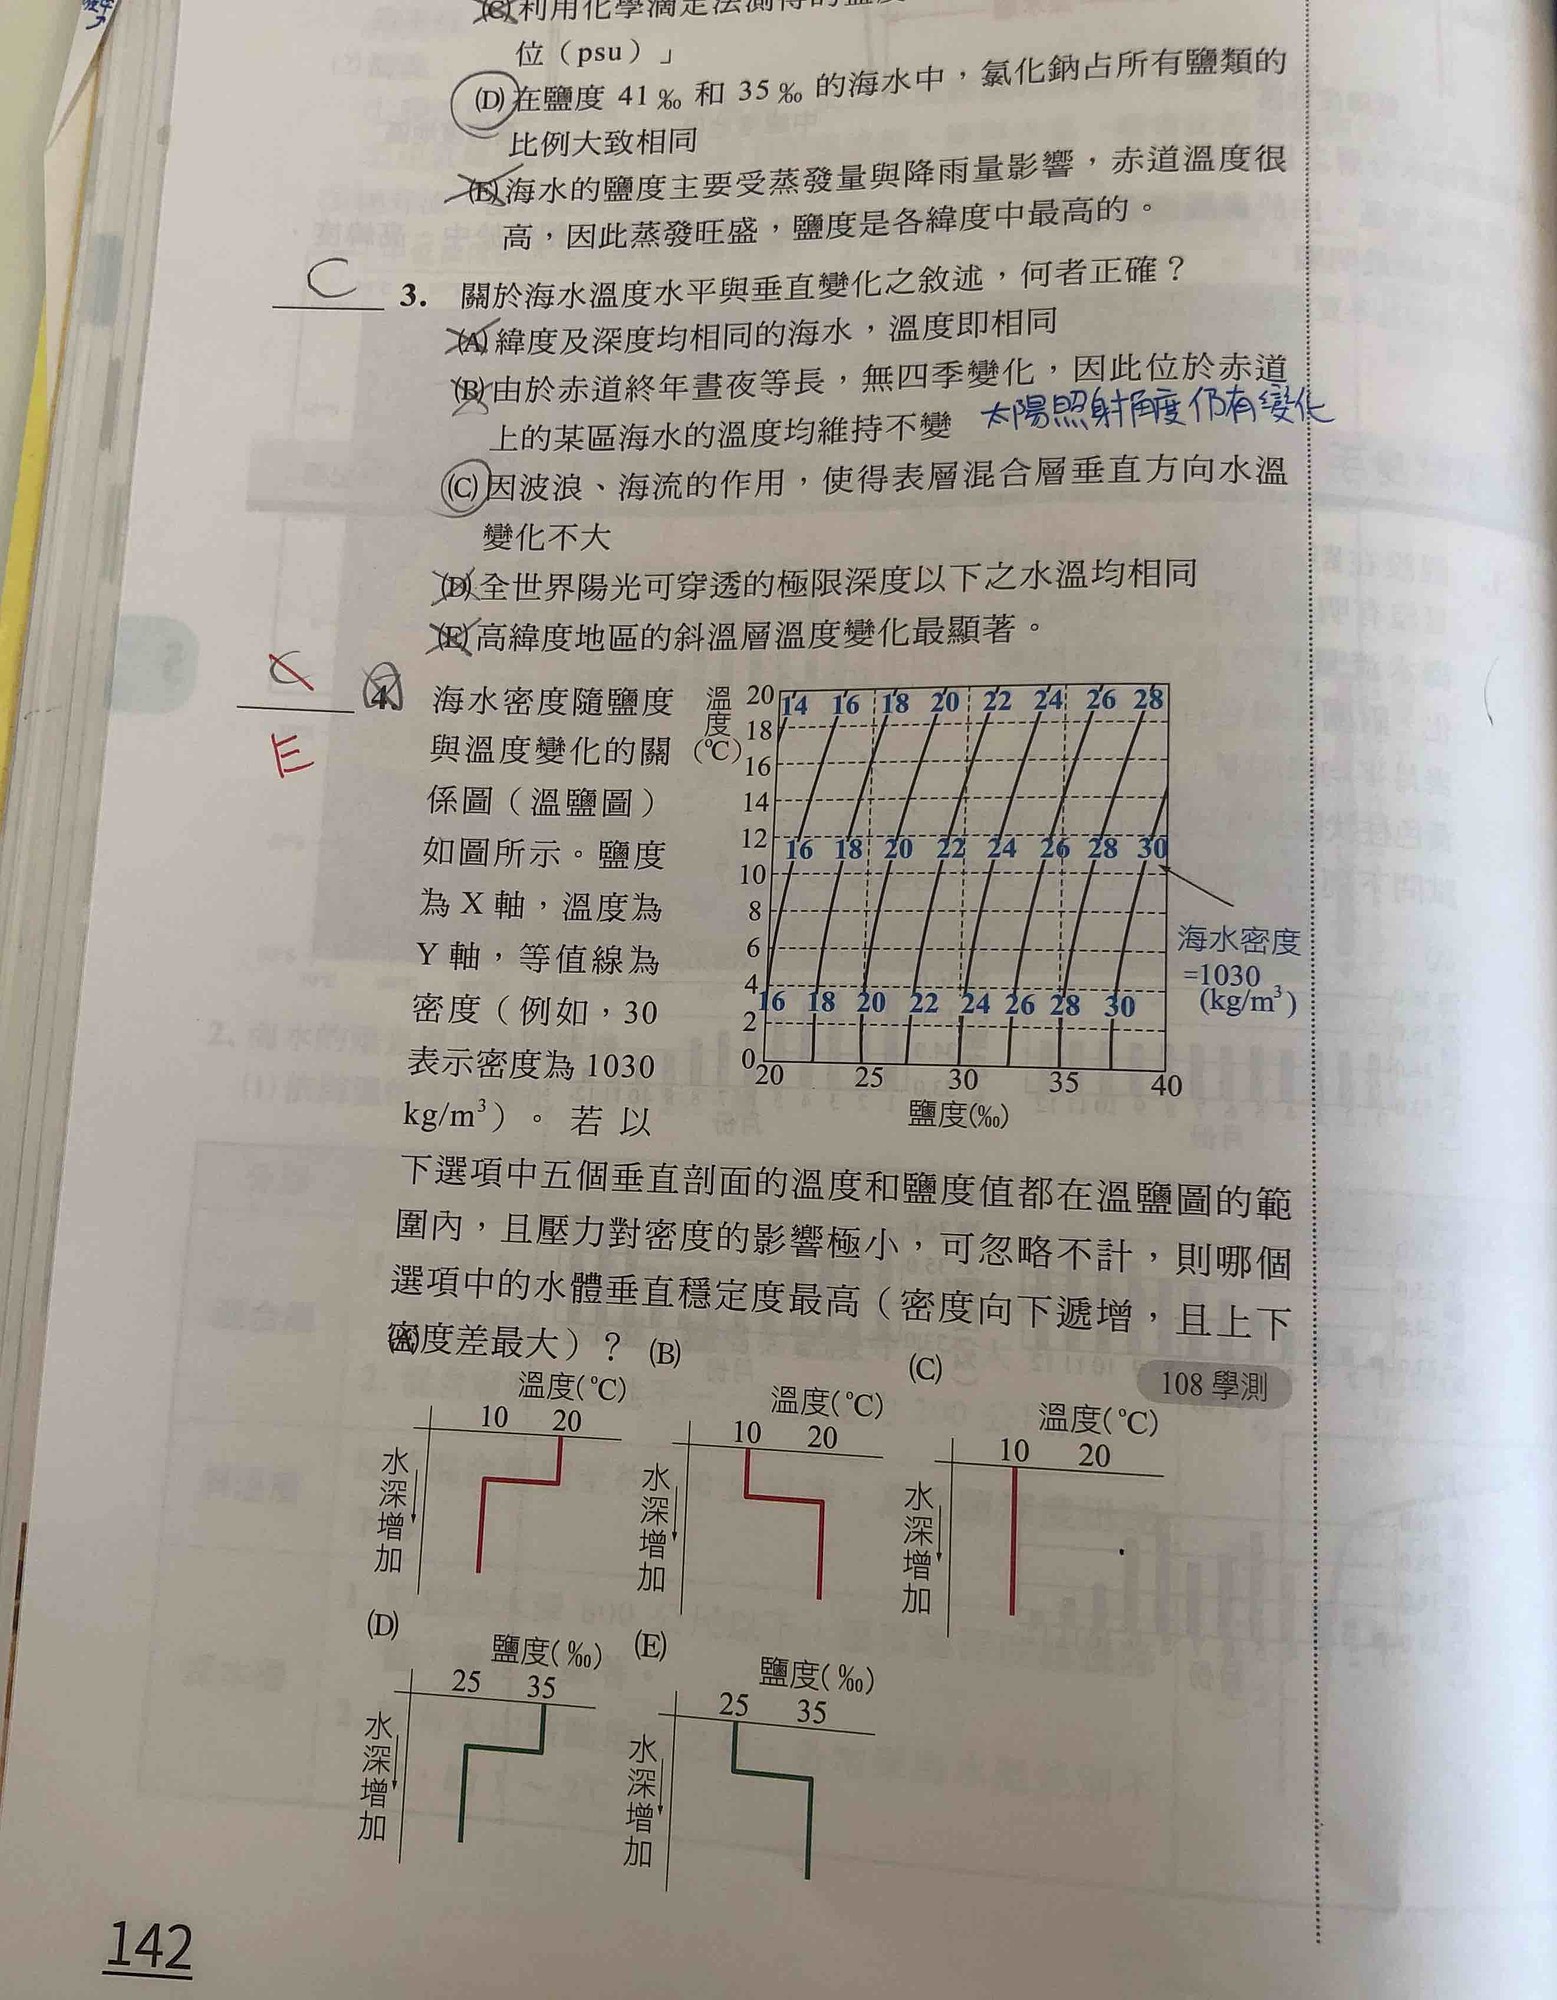 (C)利用化學滴定法測得的鹽度
位（psu）」
(D)在鹽度 41 ‰ 和 35 ‰ 的海水中，氯化鈉占所有鹽類的
比例大致相同
(E)海水的鹽度主要受蒸發量與降雨量影響，赤道溫度很
高，因此蒸發旺盛，鹽度是各緯度中最高的。
C
3. 關於海水溫度水平與垂直變化之敘述，何者正確？
(A)緯度及深度均相同的海水，溫度即相同
(B)由於赤道終年晝夜等長，無四季變化，因此位於赤道
上的某區海水的溫度均維持不變
太陽照射角度仍有變化
(C)因波浪、海流的作用，使得表層混合層垂直方向水溫
變化不大
(D)全世界陽光可穿透的極限深度以下之水溫均相同
(E)高緯度地區的斜溫層溫度變化最顯著。
C
E
4. 海水密度隨鹽度
與溫度變化的關
係圖（溫鹽圖）
如圖所示。鹽度
為 X 軸，溫度為
Y 軸，等值線為
密度（例如，30
表示密度為 1030
kg/m³）。若以
下選項中五個垂直剖面的溫度和鹽度值都在溫鹽圖的範
圍內，且壓力對密度的影響極小，可忽略不計，則哪個
選項中的水體垂直穩定度最高（密度向下遞增，且上下
密度差最大）？
108 學測
溫度(℃)
20
18
16
14
12
10
8
6
4
2
0
14 16 18 20 22 24 26 28
16 18 20 22 24 26 28 30
16 18 20 22 24 26 28 30
20 25 30 35 40
鹽度(‰)
海水密度
=1030
(kg/m³)
(A)
溫度(℃)
10 20
水深增加
(B)
溫度(℃)
10 20
水深增加
(C)
溫度(℃)
10 20
水深增加
(D)
鹽度(‰)
25 35
水深增加
(E)
鹽度(‰)
25 35
水深增加
142